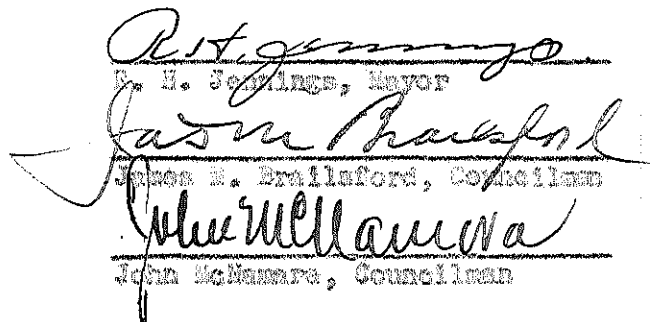 R. H. Jennings
R. H. Jennings, Mayor
Jas M Brailsford
James M. Brailsford, Councilman
John McNamara
John McNamara, Councilman